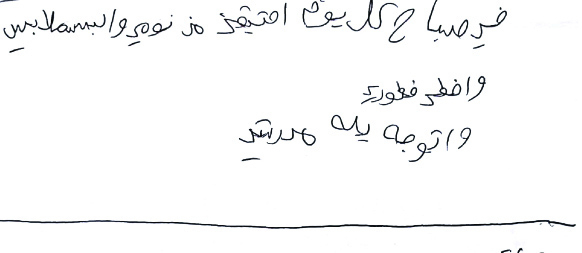 في صباح كل يوم استيقظ من نومي والبس ملابسي
وافطر فطوري
واتوجه يله مدرستي